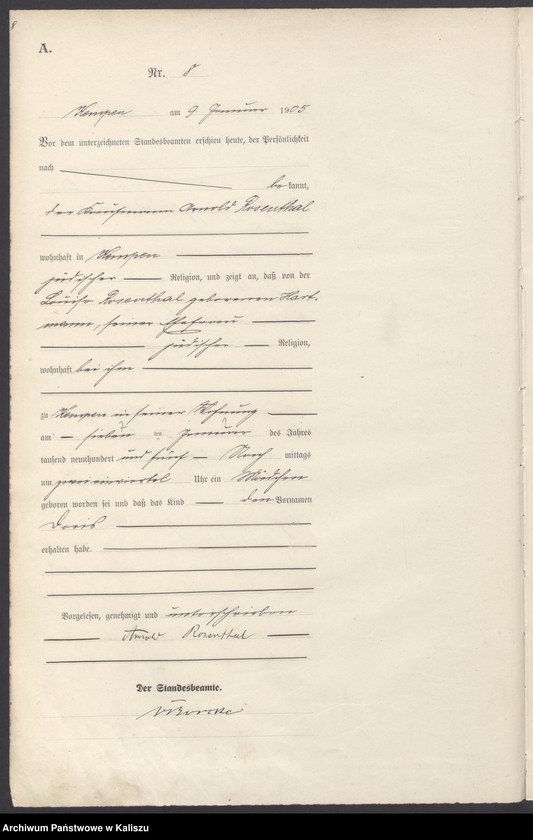 8
A.
Nr. 8
Kempen am 9 Januar 1905
Vor dem unterzeichneten Standesbeamten erschien heute, der Persönlichkeit
nach
bekannt,
der Kaufmann Arnold Rosenthal
wohnhaft in Kempen
jüdischer Religion, und zeigt an, daß von der
Louise Rosenthal geborenen Hart-
mann, seiner Ehefrau
jüdischer Religion,
wohnhaft bei ihm
zu Kempen in seiner Wohnung
am sieben ten Januar des Jahres
tausend neunhundert und fünf Nach mittags
um zweieinviertel Uhr ein Mädchen
geboren worden sei und daß das Kind den Vornamen
Doris
erhalten habe.
Vorgelesen, genehmigt und unterschrieben
Arnold Rosenthal
Der Standesbeamte.
Archiwum Państwowe w Kaliszu